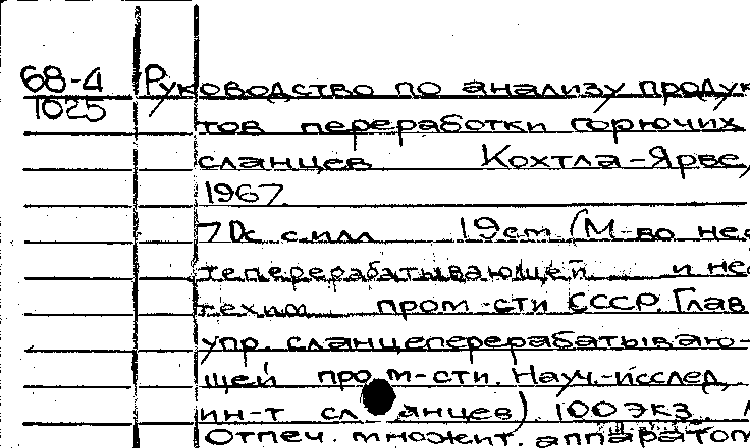 68-4 Руководство по анализу продук
1025
тов переработки горючих
сланцев Кохтла-Ярве,
1967.
70с с илл 19 cm (М-во неф
теперерабатывающей и неф
техим пром-сти СССР. Глав
упр. сланцеперерабатываю-
щей пром-сти. Науч.-исслед.
ин-т сланцев). 100 экз.
Отпеч. множит. аппаратом